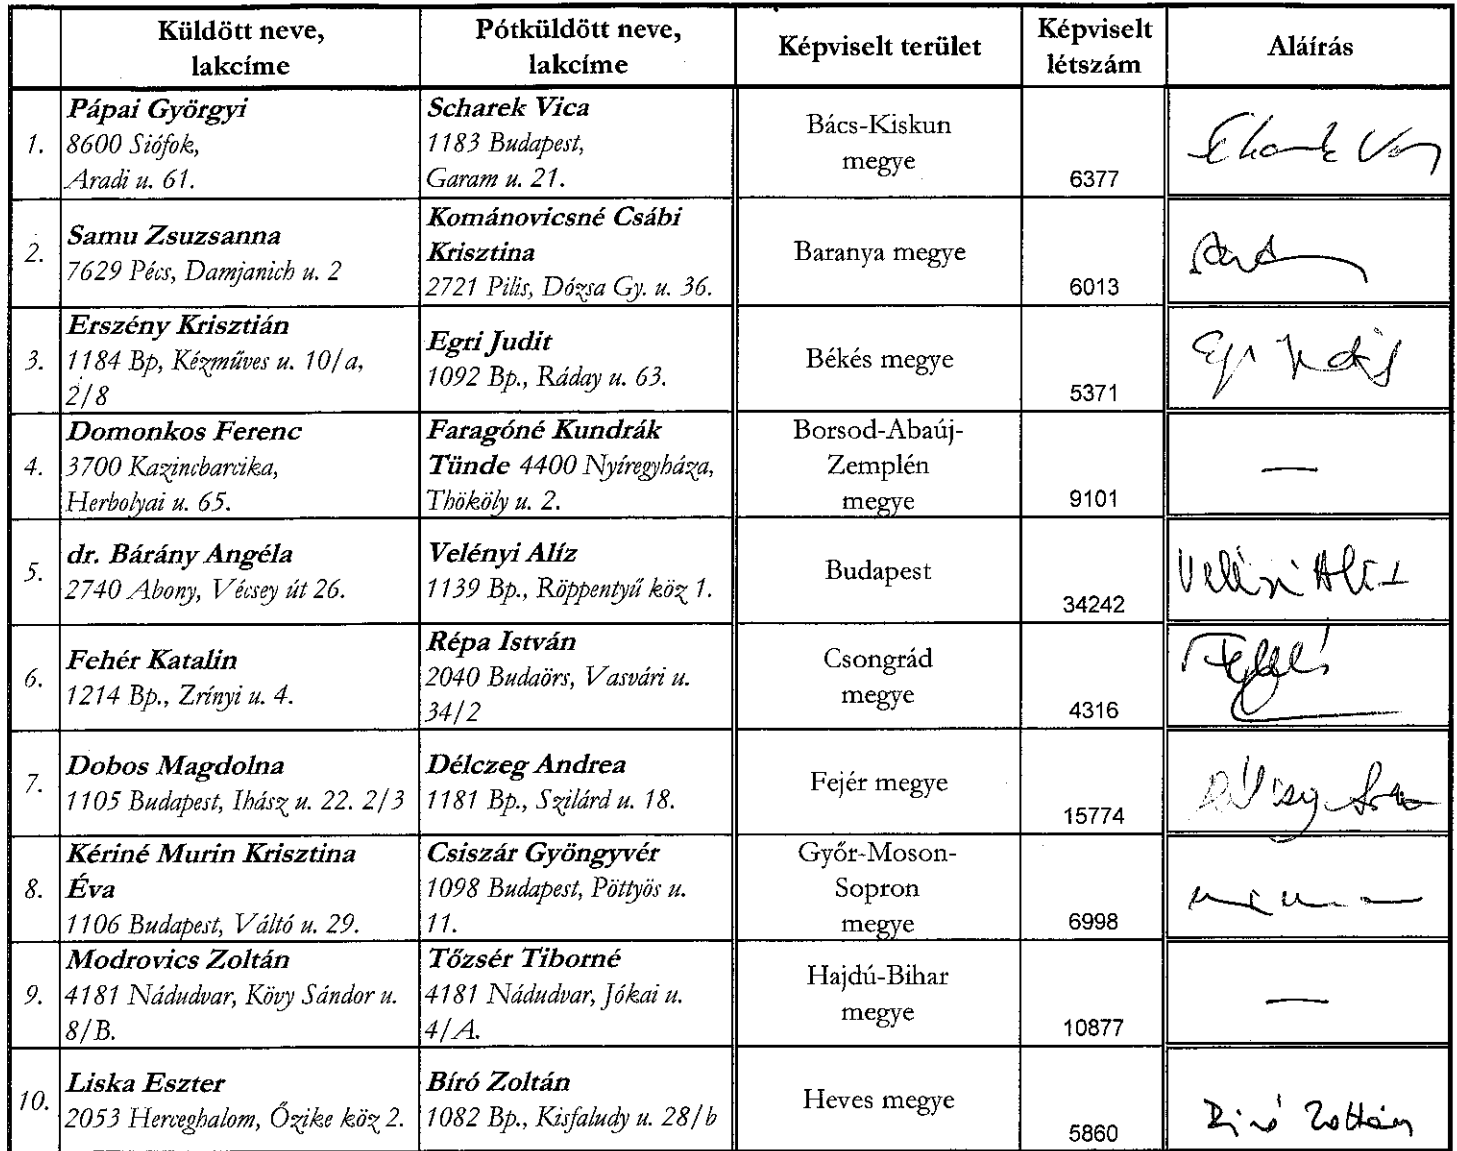 Küldött neve, lakcíme | Pótküldött neve, lakcíme | Képviselt terület | Képviselt létszám | Aláírás
1.
Pápai Györgyi
8600 Siófok,
Aradi u. 61.
Scharek Vica
1183 Budapest,
Garam u. 21.
Bács-Kiskun
megye
6377
2.
Samu Zsuzsanna
7629 Pécs, Damjanich u. 2
Kománovicsné Csábi
Krisztina
2721 Pilis, Dózsa Gy. u. 36.
Baranya megye
6013
3.
Erszény Krisztián
1184 Bp, Kézműves u. 10/a,
2/8
Egri Judit
1092 Bp., Ráday u. 63.
Békés megye
5371
4.
Domonkos Ferenc
3700 Kazincbarcika,
Herbolyai u. 65.
Faragóné Kundrák
Tünde 4400 Nyíregyháza,
Thököly u. 2.
Borsod-Abaúj-
Zemplén
megye
9101
—
5.
dr. Bárány Angéla
2740 Abony, Vécsey út 26.
Velényi Alíz
1139 Bp., Röppentyű köz 1.
Budapest
34242
6.
Fehér Katalin
1214 Bp., Zrínyi u. 4.
Répa István
2040 Budaörs, Vasvári u.
34/2
Csongrád
megye
4316
7.
Dobos Magdolna
1105 Budapest, Ihász u. 22. 2/3
Délczeg Andrea
1181 Bp., Szilárd u. 18.
Fejér megye
15774
8.
Kériné Murin Krisztina
Éva
1106 Budapest, Váltó u. 29.
Csiszár Gyöngyvér
1098 Budapest, Pöttyös u.
11.
Győr-Moson-
Sopron
megye
6998
9.
Modrovics Zoltán
4181 Nádudvar, Kövy Sándor u.
8/B.
Tőzsér Tiborné
4181 Nádudvar, Jókai u.
4/A.
Hajdú-Bihar
megye
10877
—
10.
Liska Eszter
2053 Herceghalom, Őzike köz 2.
Bíró Zoltán
1082 Bp., Kisfaludy u. 28/b
Heves megye
5860
Bíró Zoltán